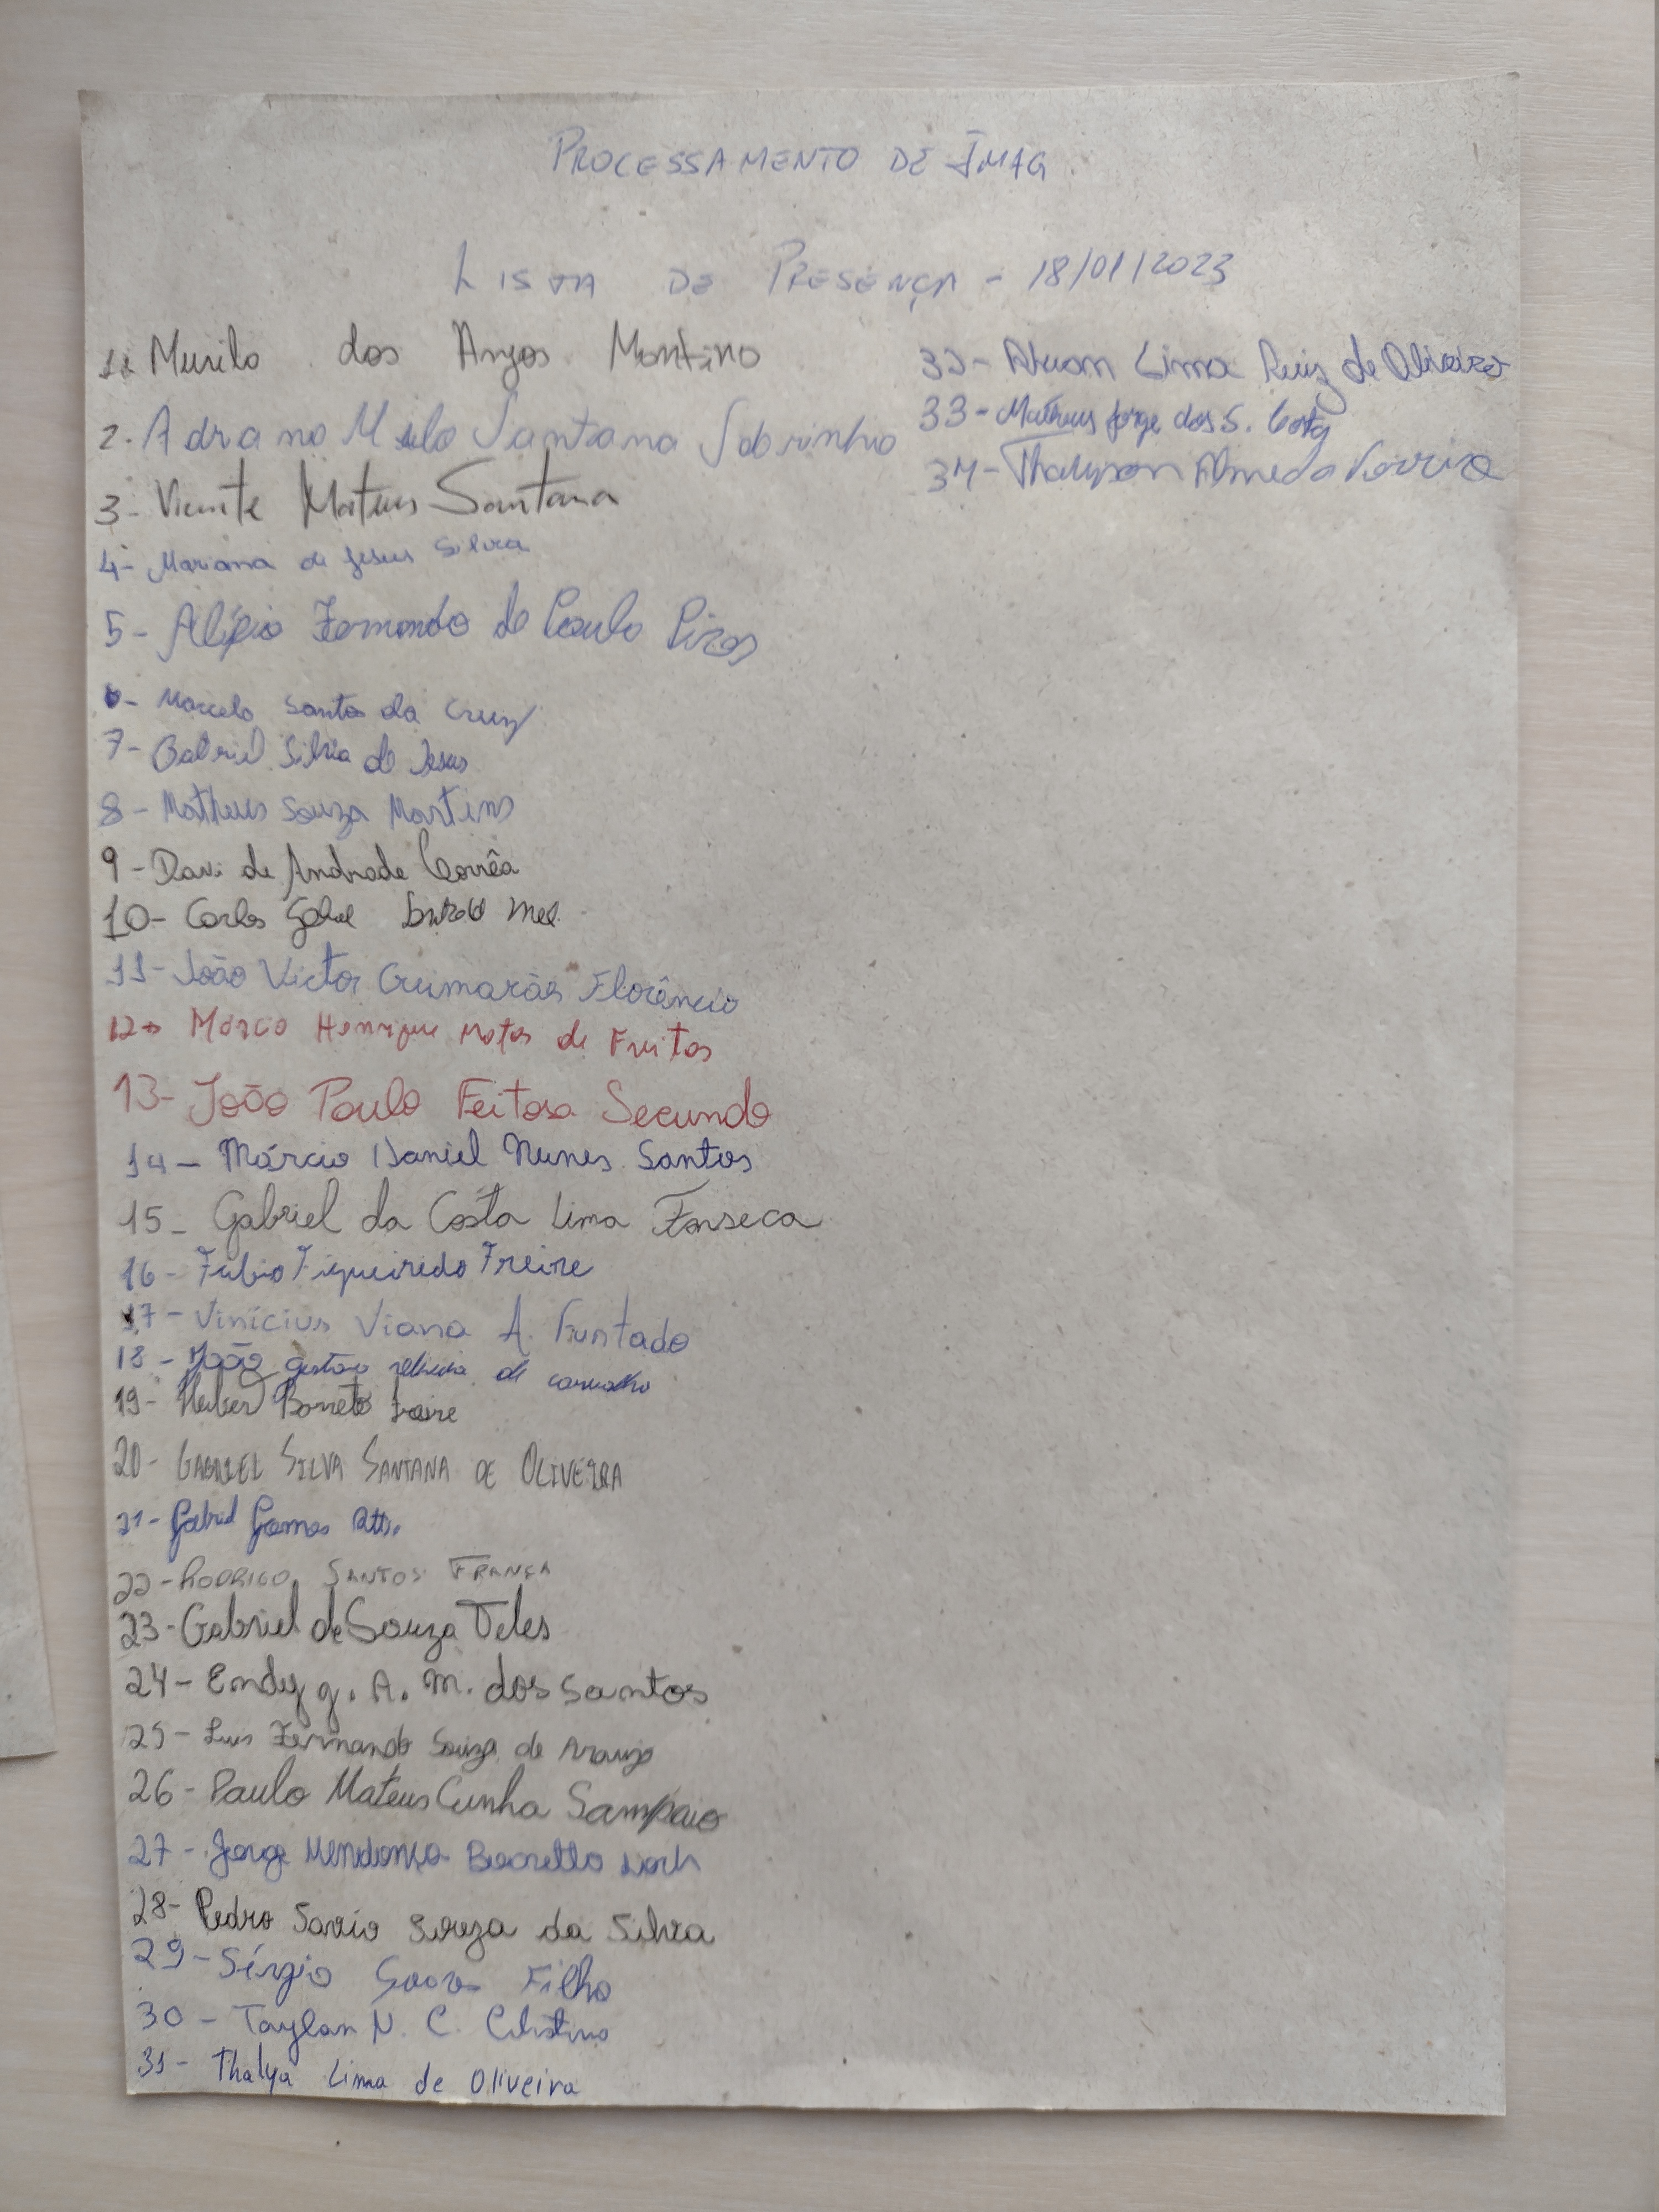 PROCESSAMENTO DE IMAG.
LISTA DE PRESENÇA - 18/01/2023
1. Murilo dos Anjos Montino
2. Adrano Melo Santana Sobrinho
3- Vicente Mateus Santana
4- Mariana de Jesus Silva
5- Alípio Fernando de Paulo Pires
6- Marcelo Santos da Cruz
7- Gabriel Silva de Jesus
8- Matheus Souza Martins
9- Davi de Andrade Corrêa
10- Carlos
11- João Victor Guimarães Florêncio
12- Marco Henrique Matos de Freitas
13- João Paulo Feitosa Secundo
14- Márcio Daniel Nunes Santos
15- Gabriel da Costa Lima Fonseca
16- Fabio Figueiredo Freire
17- Vinícius Viana A. Furtado
18- João de carvalho
19- Barreto Freire
20- GABRIEL SILVA SANTANA DE OLIVEIRA
21- Gabriel Gomes
22- RODRIGO SANTOS FRANÇA
23- Gabriel de Souza Teles
24- Endy g. A. M. dos Santos
25- Luis Fernando Souza de Araujo
26- Paulo Mateus Cunha Sampaio
27- Jorge Mendonça
28- Pedro Savio Souza da Silva
29- Sérgio Filho
30- Taylan N. C. Celistino
31- Thalya Lima de Oliveira
32- Lima Ruiz de Oliveira
33- Matheus Jorge dos S. Costa
34- Almeida